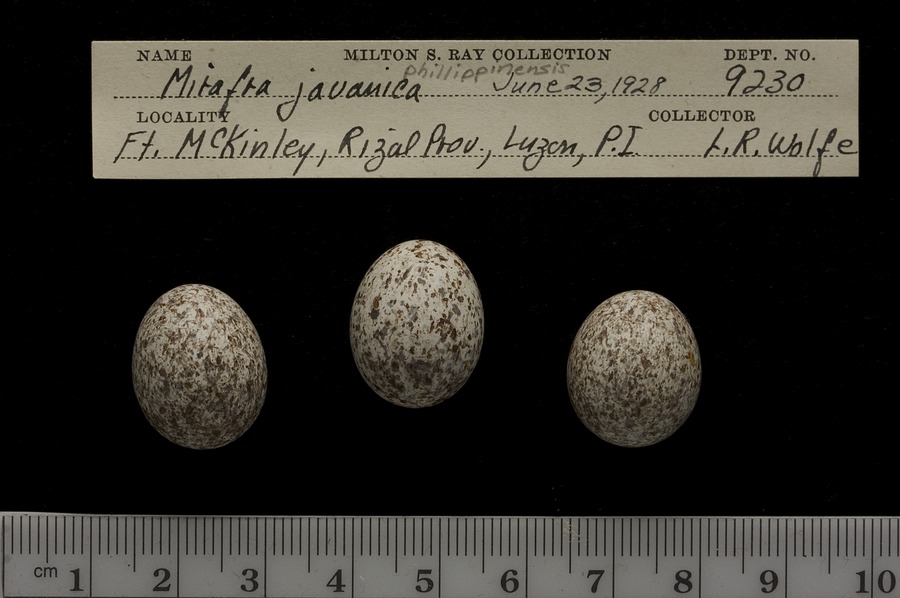 NAME MILTON S. RAY COLLECTION DEPT. NO.
phillippinensis
Mirafra javanica June 23, 1928 9230
LOCALITY COLLECTOR
Ft. McKinley, Rizal Prov., Luzon, P.I. L.R. Wolfe
cm 1 2 3 4 5 6 7 8 9 10